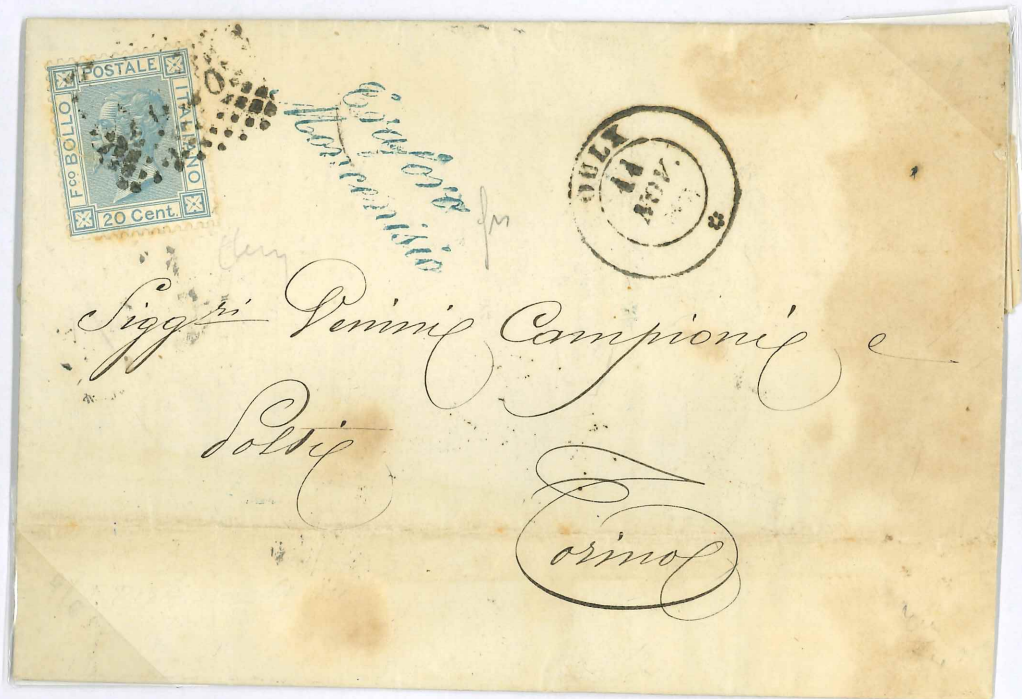 POSTALE
Fco BOLLO
ITALIANO
20 Cent.
Traforo
Moncenisio
OULX
11
NOV.
Siggri Venini Campioni e
Polti
Torino